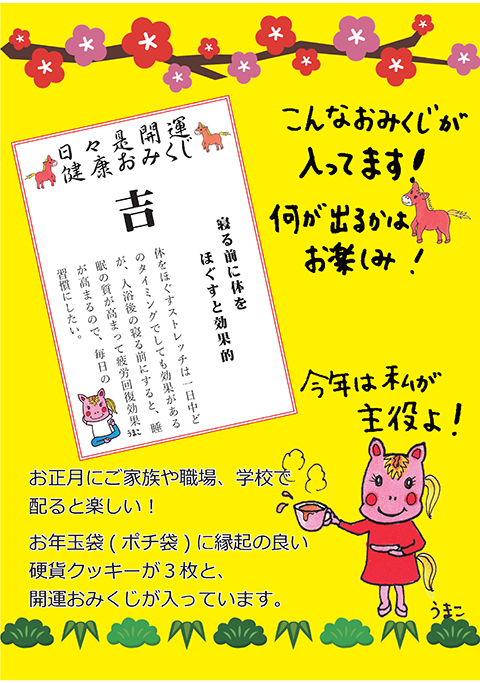 こんなおみくじが
入ってます！
何が出るかは
お楽しみ！
日々是開運
健康おみくじ
吉
寝る前に体を
ほぐすと効果的
体をほぐすストレッチは一日中ど
のタイミングでしても効果がある
が、入浴後の寝る前にすると、睡
眠の質が高まって疲労回復効果
が高まるので、毎日の
習慣にしたい。
うまこ
今年は私が
主役よ！
お正月にご家族や職場、学校で
配ると楽しい！
お年玉袋(ポチ袋)に縁起の良い
硬貨クッキーが３枚と、
開運おみくじが入っています。
うまこ